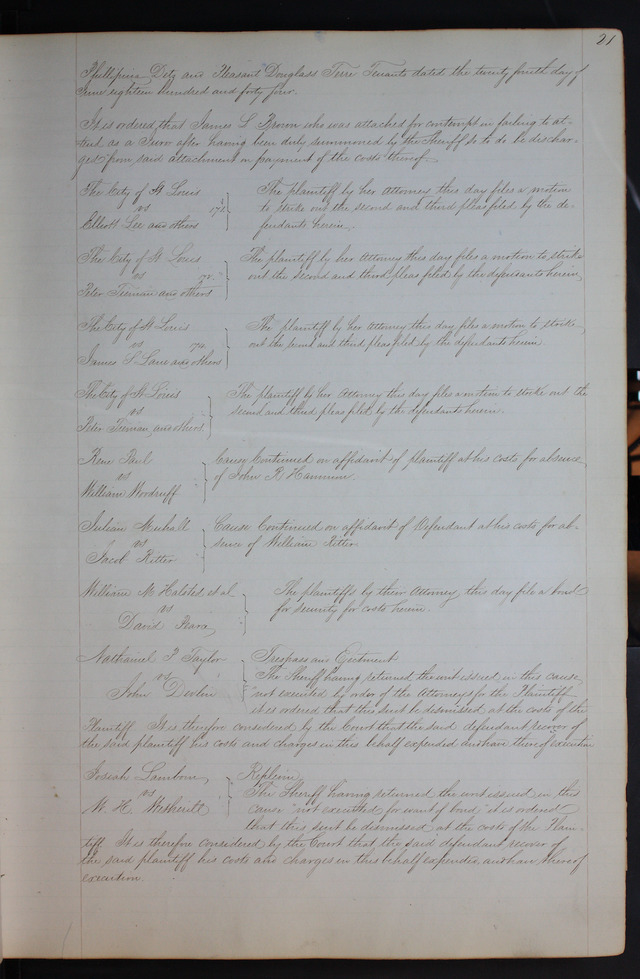 21
Phillipina Detz and Pleasant Douglass Terre Tenants dated the twenty fourth day of
June eighteen hundred and forty four.
It is ordered, that James L Brown who was attached for contempt in failing to at-
tend as a Juror after having been duly summoned by the Sheriff so to do be dischar-
ged from said attachment on payment of the costs thereof
The City of St Louis
vs
Elliott Lee and others
The plaintiff by her Attorney this day files a motion
to strike out the second and third pleas filed by the de-
fendants herein.
The City of St Louis
vs
Peter Tieman and others
The plaintiff by her Attorney this day files a motion to strike
out the second and third pleas filed by the defendants herein,
The City of St Louis
vs
James S Lane and others
The plaintiff by her Attorney this day files a motion to stroke
out the second and third pleas filed by the defendants herein
The City of St Louis
vs
Peter Tieman and others
The plaintiff by her Attorney this day files a motion to stroke out the
second and third pleas filed by the defendants herein.
Rene Paul
vs
William Woodruff
Cause Continued on affidavit of plaintiff at his costs for absence
of John R
Julian
vs
Jacob Ritter
Cause Continued on affidavit of Defendant at his costs for ab-
sence of William Ritter
William M Halsted et al
vs
David
The plaintiffs by their Attorney this day file a bond
for security for costs herein.
Nathaniel P Taylor
vs
John Devlin
Trespass and Ejectment
The Sheriff having returned the writ issued in this cause
"not executed by order of the Attorneys for the Plaintiff
it is ordered that this suit be dismissed at the costs of the
Plaintiff It is therefore considered by the Court that the said defendant recover of
the said plaintiff his costs and charges in this behalf expended and have thereof execution
Josiah
vs
W. H.
Replevin
The Sheriff having returned the writ issued in this
cause "not executed for want of bond" it is ordered
that this suit be dismissed at the costs of the Plain-
tiff It is therefore considered by the Court that the said defendant recover of
the said plaintiff his costs and charges in this behalf expended, and have thereof
execution.